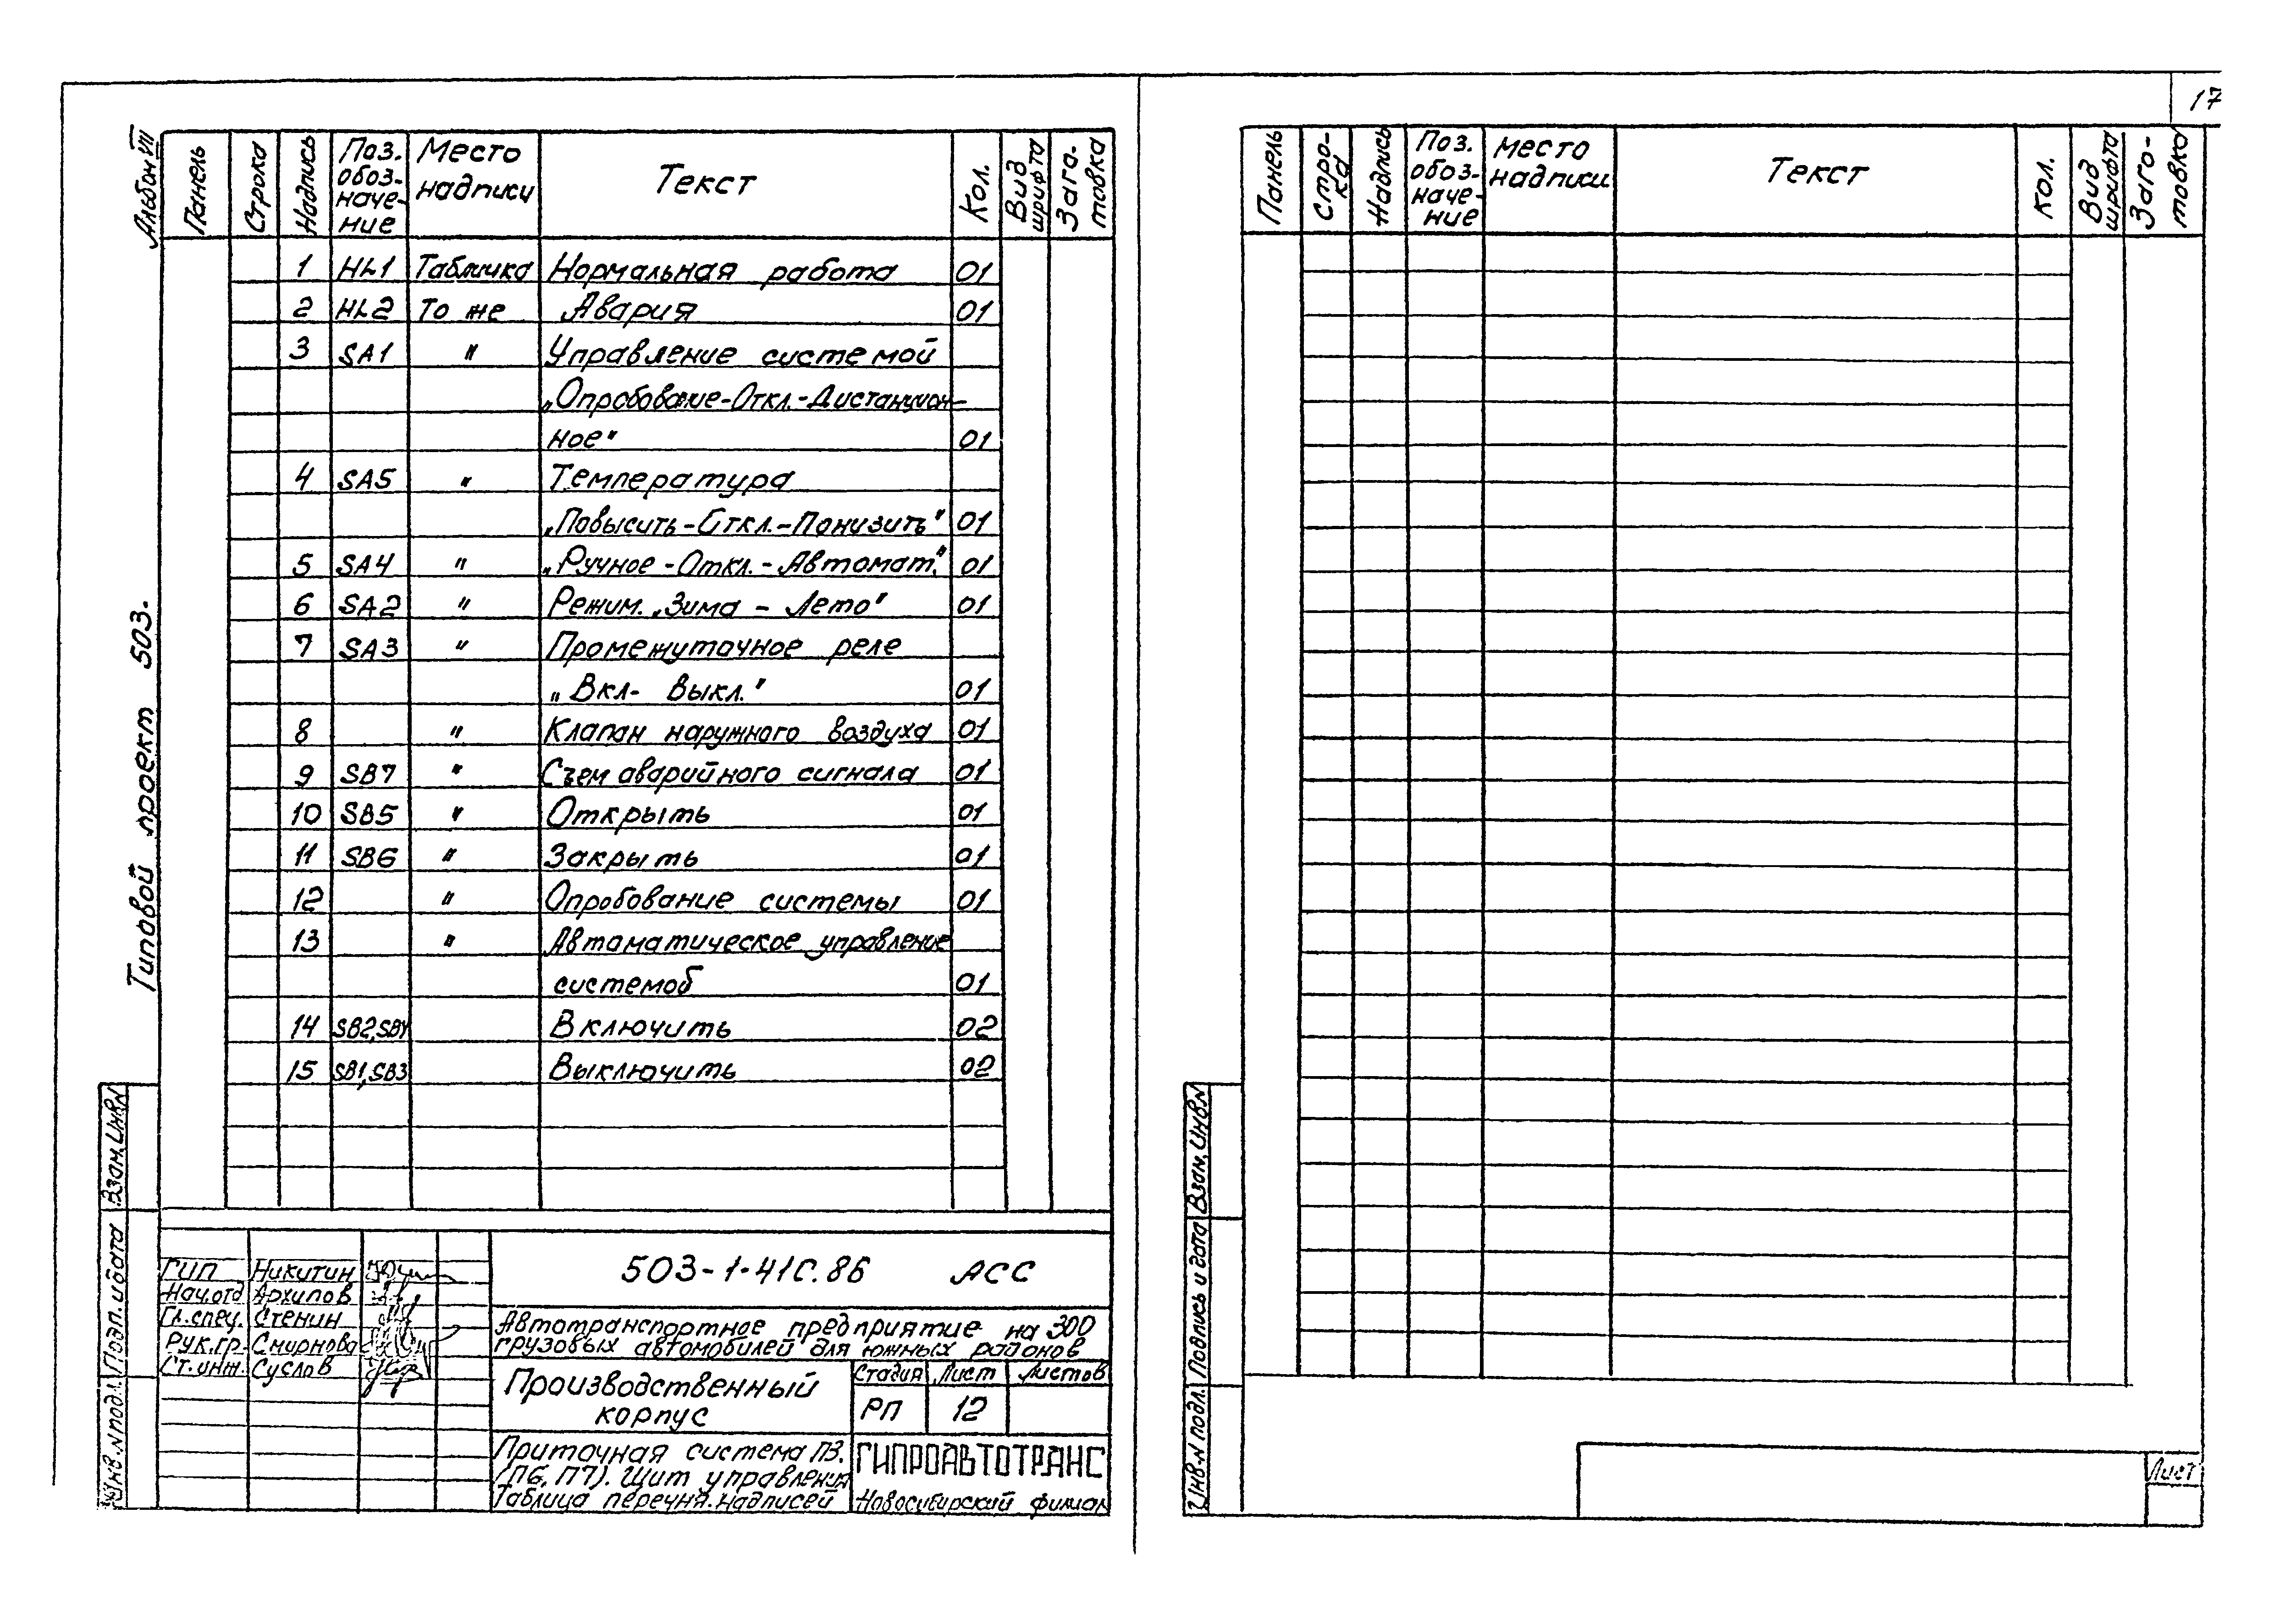 17
Альбом VII
Типовой проект 503.
Панель
Строка
Надпись
Поз. обоз- наче- ние
Место надписи
Текст
Кол.
Вид шрифта
Заго- товка
1 HL1 Табличка Нормальная работа 01
2 HL2 То же Авария 01
3 SA1 " Управление системой
„Опробование-Откл.-Дистанцион-
ное" 01
4 SA5 " Температура
„Повысить-Откл.-Понизить" 01
5 SA4 " „Ручное-Откл.-Автомат." 01
6 SA2 " Режим „Зима - Лето" 01
7 SA3 " Промежуточное реле
„Вкл- выкл." 01
8 " Клапан наружного воздуха 01
9 SB7 " Съем аварийного сигнала 01
10 SB5 " Открыть 01
11 SB6 " Закрыть 01
12 " Опробование системы 01
13 " Автоматическое управление
системой 01
14 SB2,SB4 Включить 02
15 SB1,SB3 Выключить 02
Взам.Инв.N
Подп. и дата
Инв.N подл.
ГИП Никитин
Нач.отд Архипов
Гл.спец. Стенин
Рук.гр. Смирнова
Ст.инж. Суслов
503-1-41С.86 АСС
Автотранспортное предприятие на 300
грузовых автомобилей для южных районов
Производственный
корпус
Стадия Лист Листов
РП 12
Приточная система П3.
(П6, П7). Щит управления
Таблица перечня надписей
ГИПРОАВТОТРАНС
Новосибирский филиал
Панель
Стро- ка
Надпись
Поз. обоз- наче- ние
Место надписи
Текст
Кол.
Вид шрифта
Заго- товка
Взам.Инв.N
Подпись и дата
Инв.N подл.
Лист